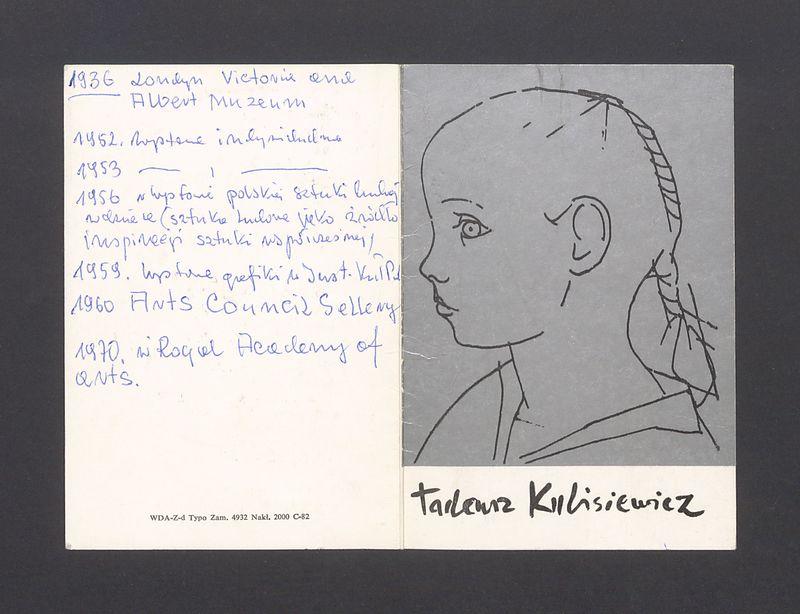 1936 Londyn Victoria and
Albert Muzeum
1952. wystawa indywidualna
1953 — " —
1956 wystawie polskiej sztuki
(sztuka ludowa jako źródło
inspiracji sztuki współczesnej)
1959. wystawa grafiki w Inst. Kult.
1960 Arts Council Gellery
1970. w Royal Academy of
arts.
WDA-Z-d Typo Zam. 4932 Nakł. 2000 C-82
Tadeusz Kulisiewicz